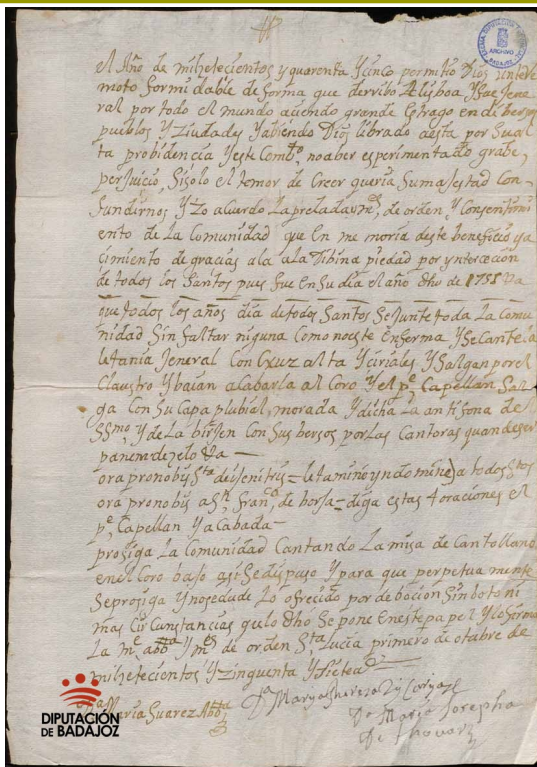 el Año de milsetecientos y quarenta Ycinco permitio Dios un terre
moto formidable de forma que derribo A lisboa Y fue Jene
ral por todo el mundo aciendo grande Estrago en dibersos
pueblos Y Ziudades Yabiendo Dios librado aesta por Sual
ta probidencia Yeste Combto, noaber esperimentado grabe,
perJuicio, Sisolo el temor de Creer queria Sumajestad Con
fundirnos Y Lo acuerdo Laprelada de orden, Y Consentimi
ento de La Comunidad que En me moria deste beneficio ya
cimiento de gracias ala Dibina piedad por yntercecion
de todos los Santos pues fue En Su dia el año dho de 1755
que todos los años dia de todos Santos Se Junte toda La Comu
nidad Sin faltar niguna Como noeste Enferma YSe Cante la
letania Jeneral Con Cruz alta Y ciriales Y Salgan por el
Claustro Y baian acabarla al Coro Y el pe Capellan Sal
ga Con Su Capa plubial, morada Y dicha La antifona del
SSmo, Y de La birjen Con Sus bersos por Las Cantoras
ora pronobis Sta a todos Stos
ora pronobis a Sn Franco de borja = diga estas 4 oraciones el
pe, Capellan Y acabada
prosiga La Comunidad Cantando La misa de Canto llano
en el Coro bajo asi Se dispuso Y para que perpetua mente
Se prosiga Y nosedude Lo ofrecido por debocion Sin boto ni
mas Circunstancias que lo dho Se pone En este papel Y lo firmo
La me abba Y ms de orden Sta Lucia primero de otubre de
milsetecientos Y Zinquenta Y Siete
Maria Suarez Abba
Da Marya theresa
Da Maria Josepha
ARCHIVO
BADAJOZ
DIPUTACIÓN
DE BADAJOZ